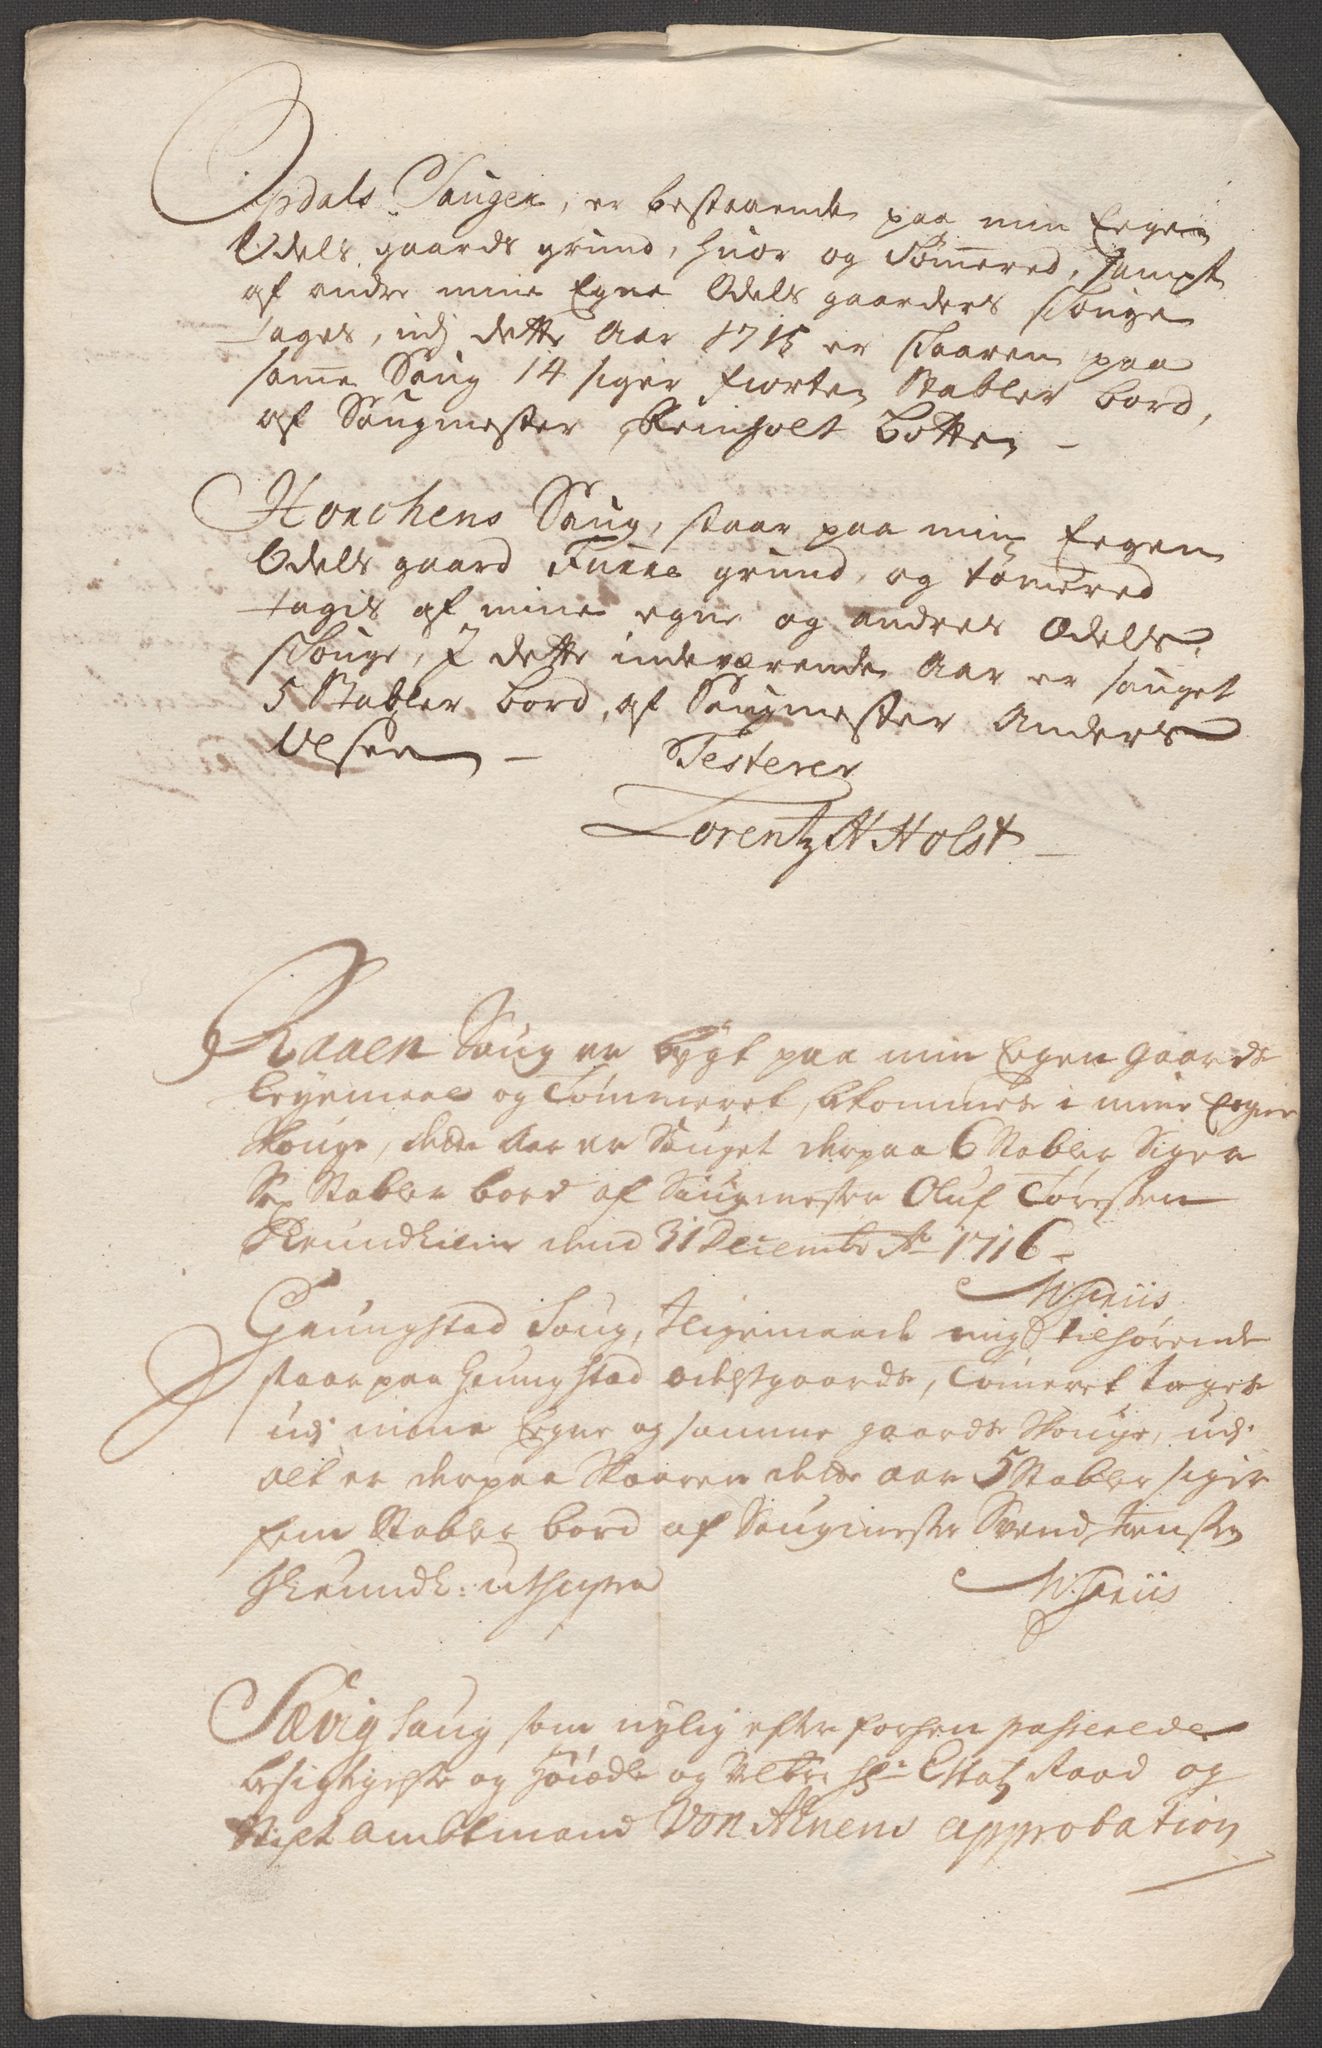 Opdals Saugen, er bestaaende paa min Eegen
Odels gaards grund, huor og Tømered, sampt
af andre mine Egne Odels gaarders skouge
tages, udj dette Aar 1715 er skaaren paa
samme Saug 14 siger Fiorten Stabler bord,
af Saugmester Reinholt Botten –
Hoachens Saug, staar paa min Eegen
Odels gaard Furre grund, og tømered
tagis af mine egne og andres Odels
skouge, J dette indeværende Aar er sauget
5 Stabler bord, af Saugmester Anders
Olsen – Testerer
Lorentz H Holst –
Raaen Saug er bygt paa min Eegen gaards
leyemaal og Tømmeret, bekommes i mine Eegne
Skouge, dette Aar er Sauget derpaa 6 Stabler Siger
Sex Stabler bord af Saugmester Oluf Toressen
Trundhiem dend 31 Decembr Ao 1716 –
W: Friis
Grungstad Saug, iligemaade mig tilhørende
staar paa Grungstad odelsgaards, Tømeret tages
udj mine Egne og samme gaards Skouge, udj
alt er derpaa Skaaren dette aar 5 Stabler siger
fem Stabler bord af Saugmester Svend Jensen
Trundh: ut supra W: Friis
Sævig Saug som nylig efter forhen passerede
besigtigelse og Höiædle og Velbr: Hr: Etatz Raad og
Stiftambtmand Von Ahnens approbation